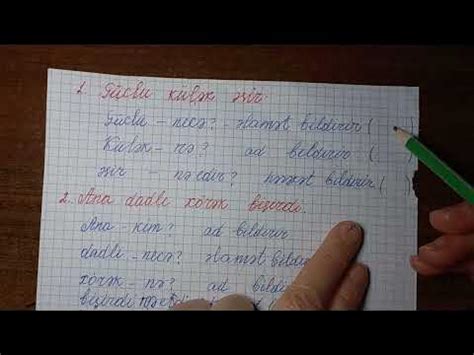 1. Güclü külək əsir.
Güclü – necə? – əlamət bildirir (
Külək – nə? ad bildirir (
əsir – nə edir? hərəkət bildirir ( )
2. Ana dadlı xörək bişirdi.
Ana – kim? ad bildirir
dadlı – necə? əlamət bildir
xörək – nə? ad bildir
bişirdi nə